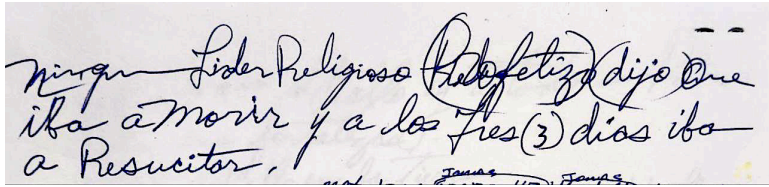 Ningun Lider Religioso Profetizo (dijo) Que
iba a Morir y a los Tres (3) dias iba
a Resucitar.
Jamas Jamas